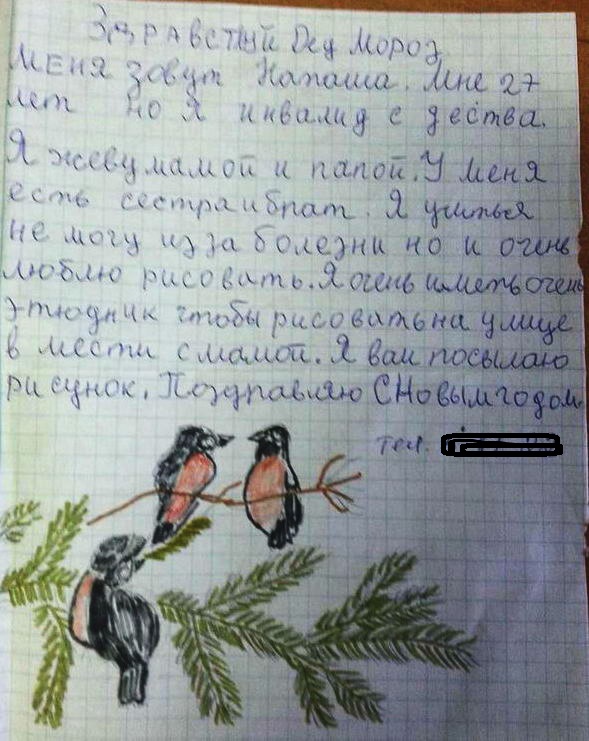 Здравствуй Дед Мороз
Меня зовут Наташа. Мне 27
лет но я инвалид с дества.
Я жеву мамой и папой. У меня
есть сестра и брат. Я учиться
не могу из за болезни но и очень
люблю рисовать. Я очень иметь очень
этюдник чтобы рисовать на улице
в мести с мамой. Я вам посылаю
рисунок. Поздравляю С Новым годом.
тел.